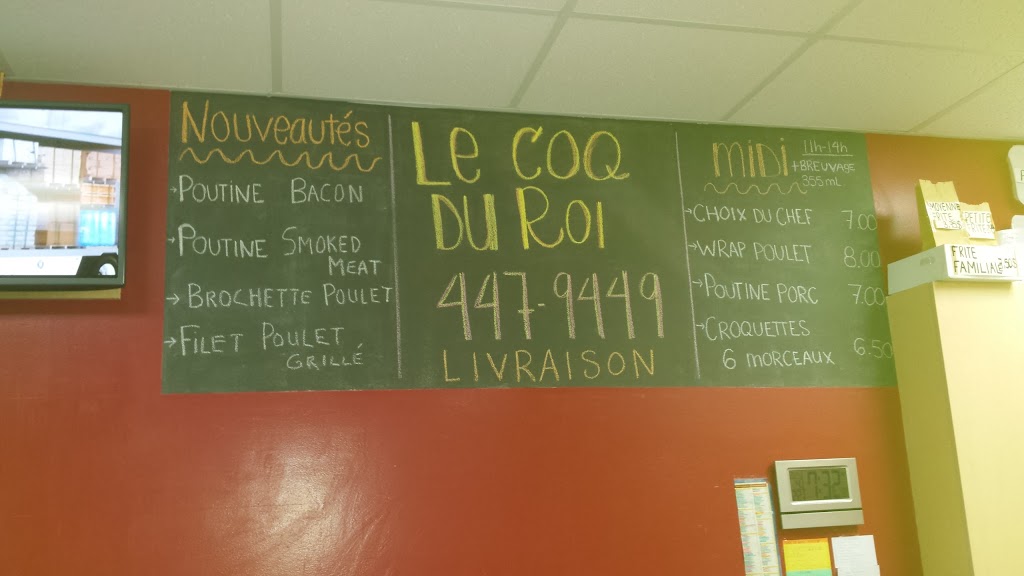 Nouveautés
→Poutine Bacon
→Poutine Smoked
Meat
→Brochette Poulet
→Filet Poulet
Grillé
Le Coq
du Roi
447-9449
Livraison
Midi
11h-14h
+Breuvage
355 mL
→Choix du chef 7.00
→Wrap Poulet 8.00
→Poutine Porc 7.00
→Croquettes
6 morceaux 6.50
Frite
Familiale